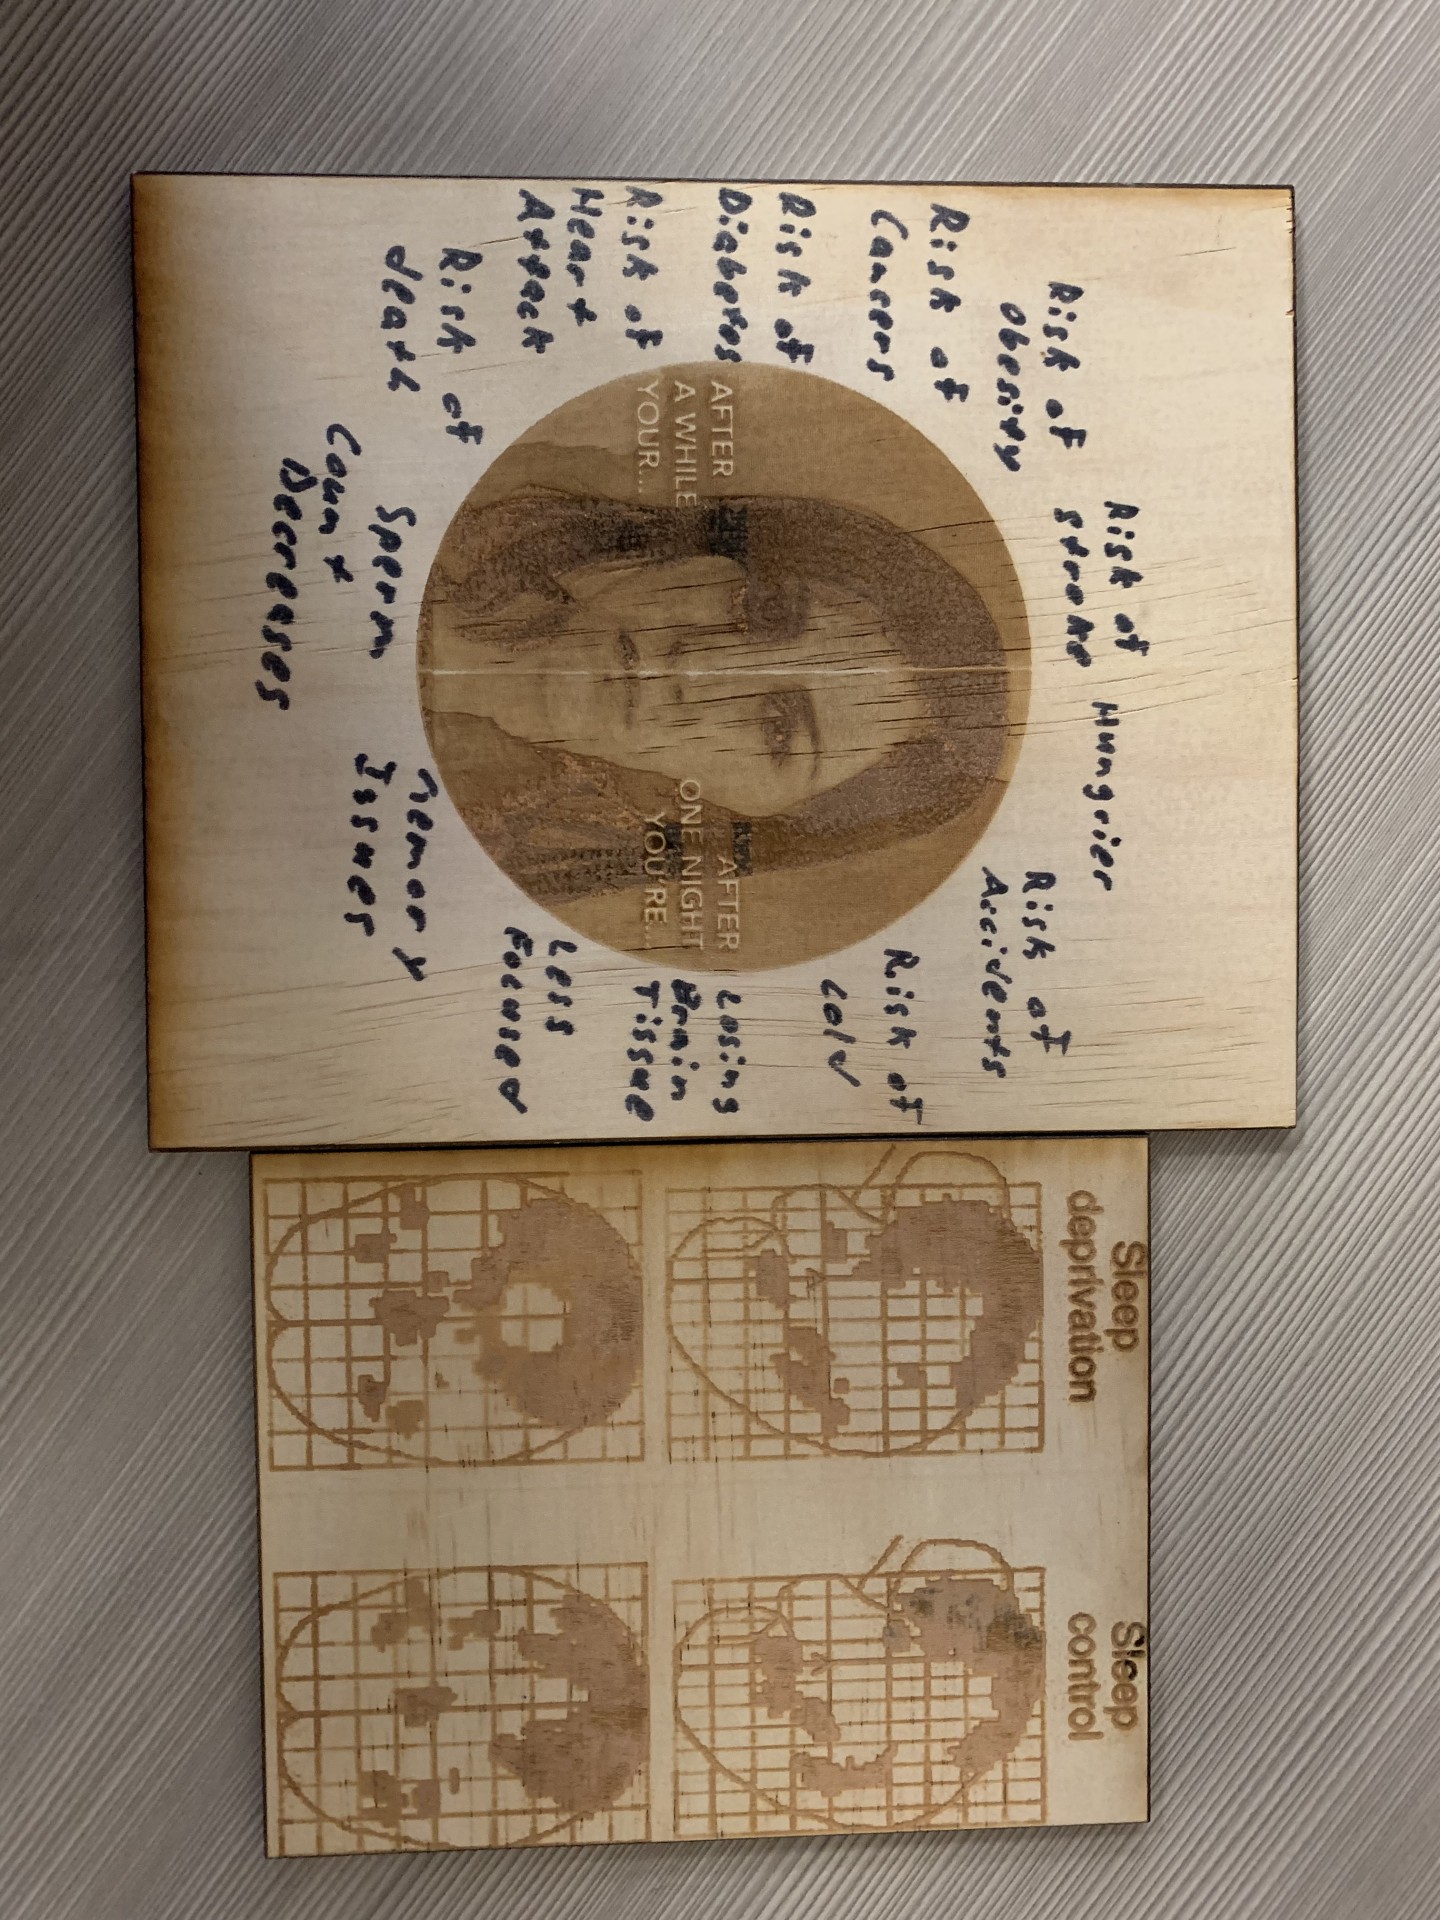 Risk of
stroke
Hungrier
Risk of
obesity
Risk of
Accidents
Risk of
Cansers
Risk of
Cold
Risk of
Diabetes
AFTER
A WHILE
YOUR...
AFTER
ONE NIGHT
YOU'RE...
Losing
Brain
Tissue
Risk of
Heart
Attack
Less
Focused
Risk of
death
Sperm
Count
Decreases
memory
Issues
Sleep
deprivation
Sleep
control